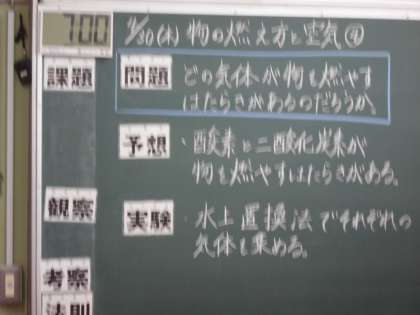 700
4/30(木) 物の燃え方と空気④
課題
問題
どの気体が物を燃やす
はたらきがあるのだろうか。
予想
・酸素と二酸化炭素が
物を燃やすはたらきがある。
観察
実験
・水上置換法でそれぞれの
気体を集める。
考察
法則